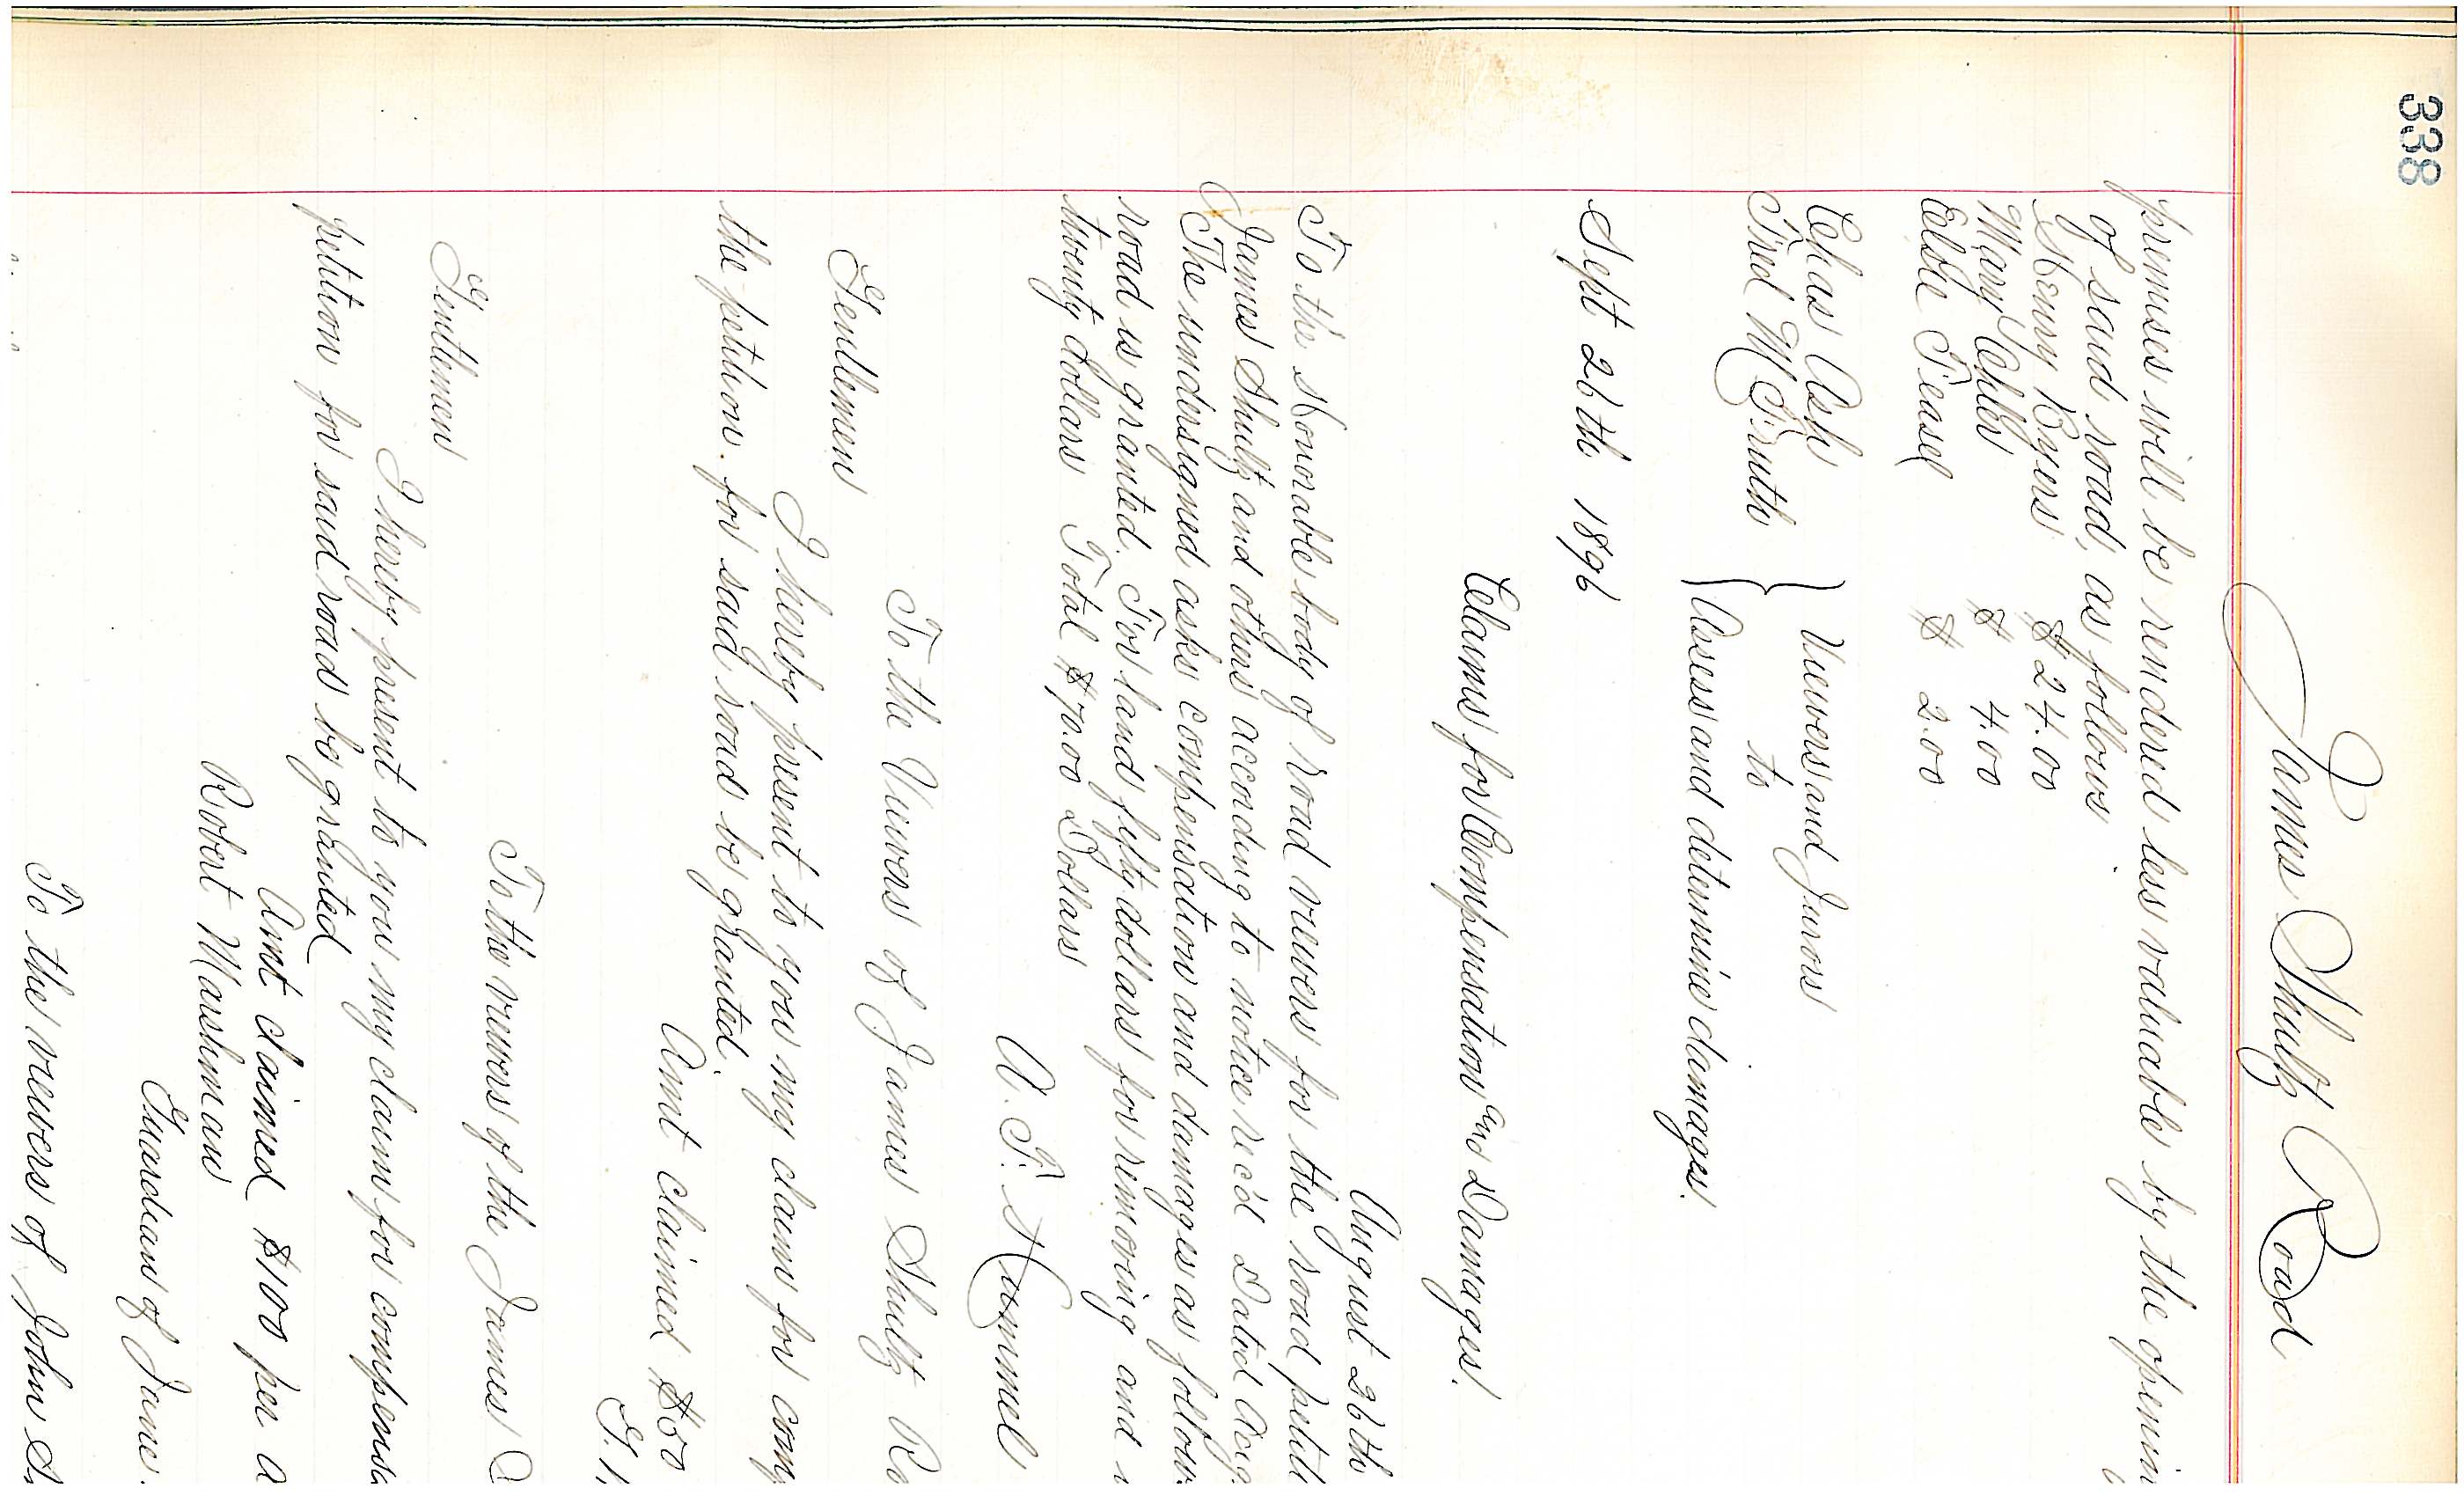 338
James Shultz Road
premises will be rendered less valuable by the openin
of said road, as follows.
Henry Byers $24.00
Mary Ohler $ 4.00
Edsle Teasel $ 2.00
Chas Ash } Viewers and Jurors
Fred M Truth to
} Assess and determine damages.
Sept 26th 1896
Claims for Compensation and Damages.
August 26th
To the Honorable body of road viewers for the road petit
James Shultz and others according to notice rec'd Dated Aug.
The undersigned asks compensation and damages as follow
road is granted. For land fifty dollars for removing and
twenty dollars Total $70.00 Dollars
A. F. Hummel
To the Viewers of James Shultz Ro
Gentlemen
I hereby present to you my claim for comp
the petition for said road be granted.
Amt claimed $50
To the viewers of the James S
Gentlemen
I hereby present to you my claim for compensa
petition for said road be granted
Amt claimed $100 per a
Robert Marshman
Guardian of Jane
To the viewers of John S.